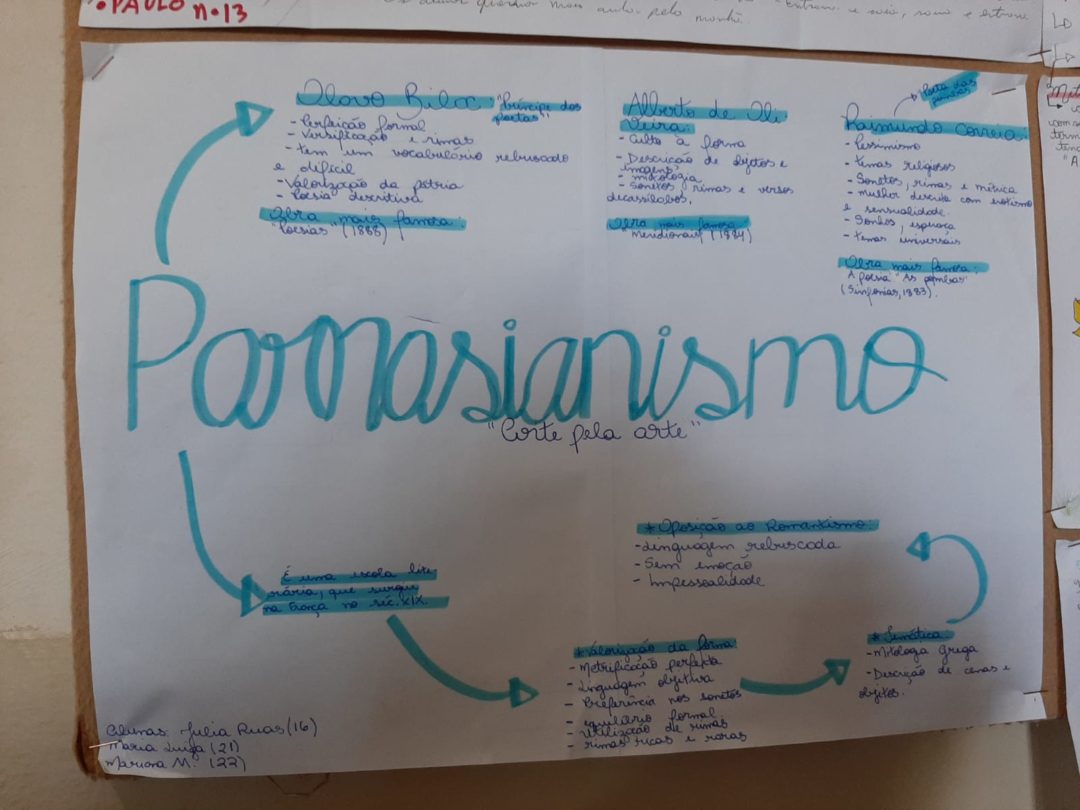 •PAULO n.13
Olavo Bilac: "Príncipe dos
poetas"
- Perfeição formal
- Versificação e rimas
- tem um vocabulário rebuscado
e difícil
- Valorização da pátria
- Poesia descritiva
Obra mais famosa:
"Poesias" (1888)
Alberto de Oli
veira:
- Culto à forma
- Descrição de objetos e
imagens
- mitologia
- Sonetos, rimas e versos
decassílabos.
Obra mais famosa
"Meridionais" (1884)
Poeta das
pombas
Raimundo Correia:
- Pessimismo
- temas religiosos
- Sonetos, rimas e métrica
- mulher descrita com erotismo
e sensualidade.
- Sonhos, esperança
- temas universais
Obra mais famosa:
A poesia "As pombas"
(Sinfonias, 1883).
Parnasianismo
"Corte pela arte"
É uma escola lite-
rária, que surgiu
na França no séc. XIX.
* Valorização da forma:
- Metrificação perfeita
- Linguagem objetiva
- Preferência nos sonetos
- equilíbrio formal
- Utilização de rimas
- rimas ricas e raras
* Temática
- Mitologia grega
- Descrição de cenas e
objetos.
* Oposição ao Romantismo:
- Linguagem rebuscada
- Sem emoção
- Impessoalidade
Alunas: Julia Ruas (16)
Maria Luiza (21)
Mariana M. (22)